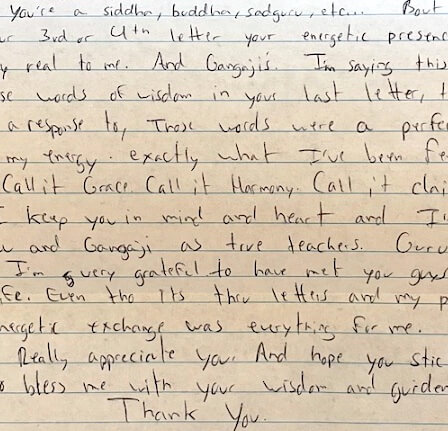 You're a siddha, buddha, sadguru, etc... Bout
3rd or 4th letter your energetic presenc
y real to me. And Gangaji's. I'm saying this
se words of wisdom in your last letter, t
a response to, Those words were a perfe
my energy. exactly what I've been fe
Call it Grace. Call it Harmony. Call it clai
I keep you in mind and heart and I'
u and Gangaji as true teachers. Guru
I'm very grateful to have met you guys
fe. Even tho its thru letters and my p
nergetic exchange was everything for me.
Really appreciate you. And hope you stic
o bless me with your wisdom and guiden
Thank You.